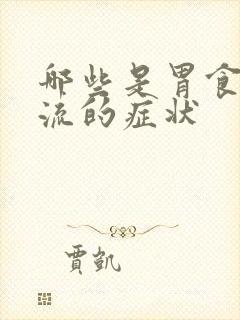 那些是胃食
流的症状
贾凯